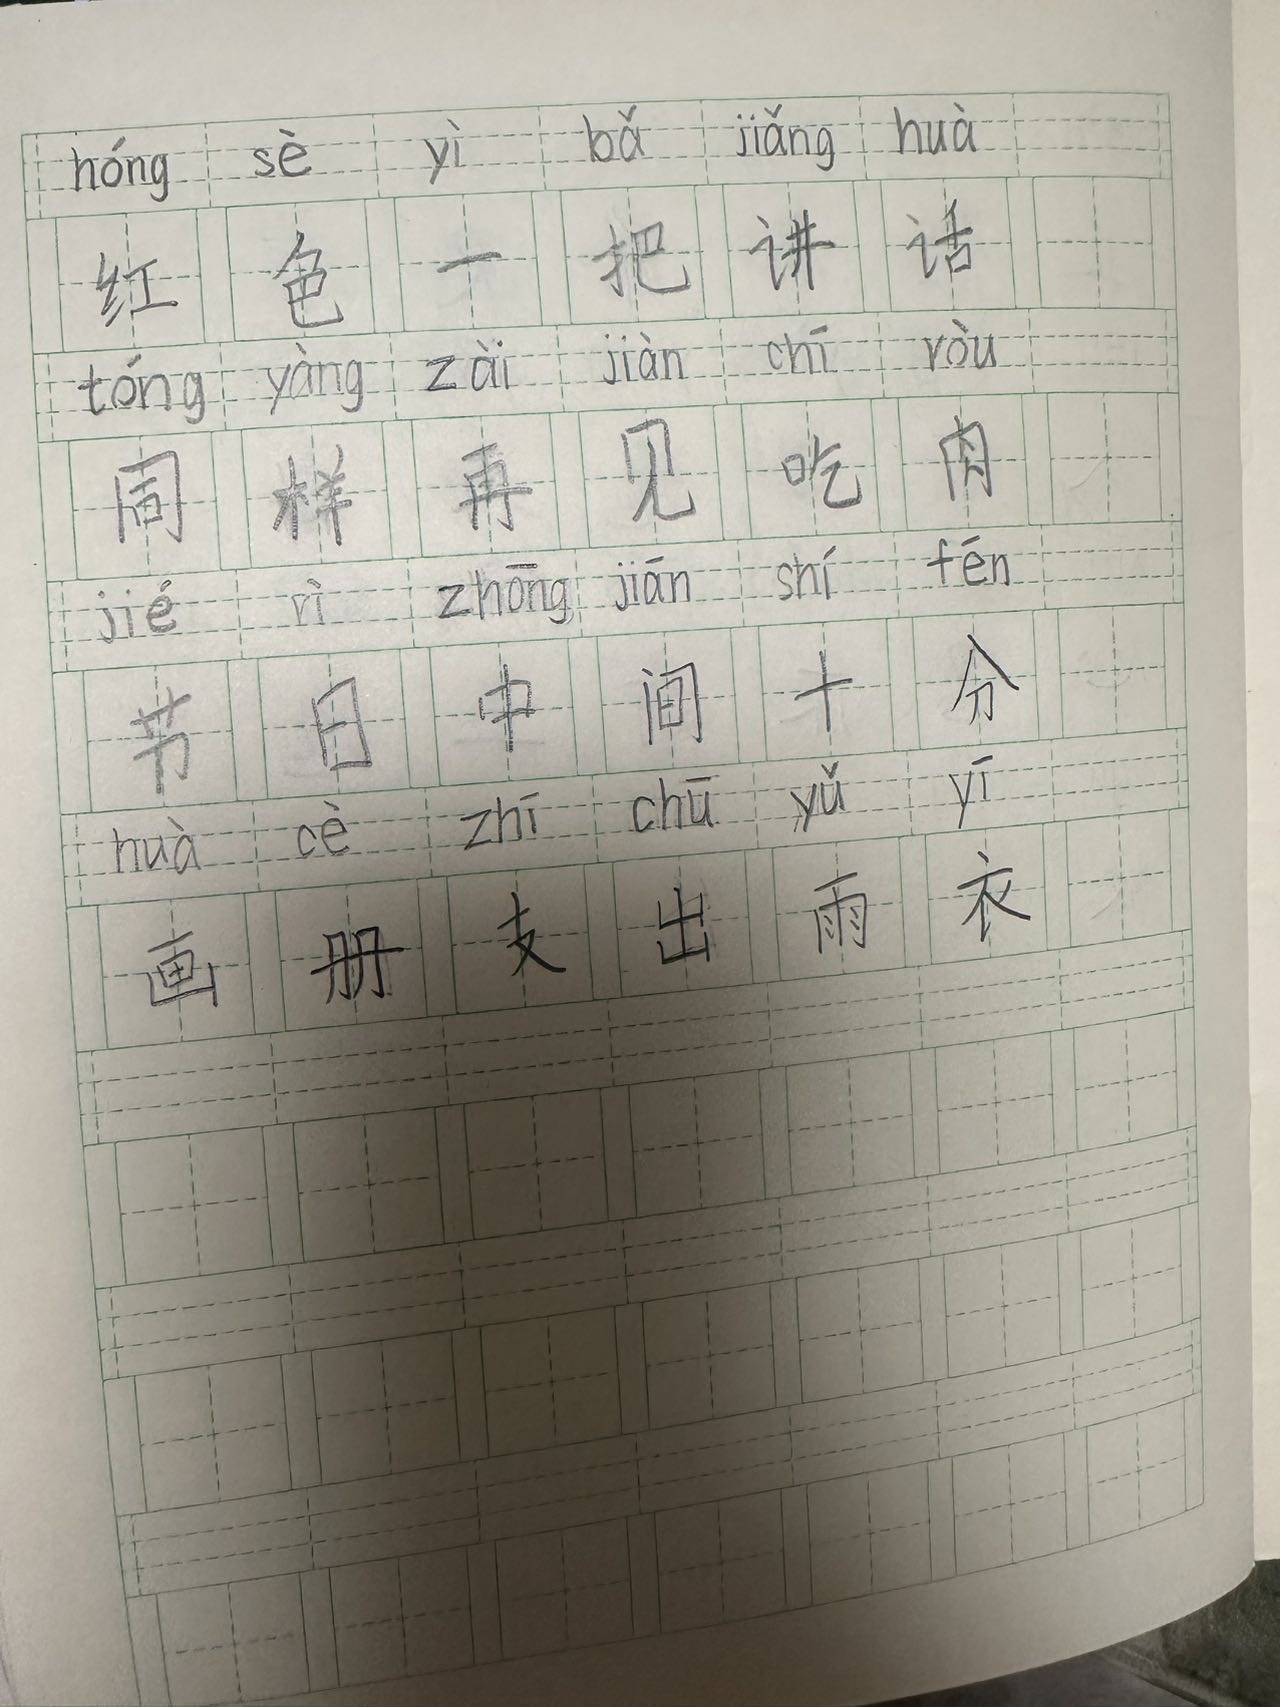 hóng sè yì bǎ jiǎng huà
红 色 一 把 讲 话
tóng yàng zài jiàn chī ròu
周 样 再 见 吃 肉
jié rì zhōng jiān shí fēn
节 日 中 间 十 分
huà cè zhī chū yǔ yī
画 册 支 出 雨 衣